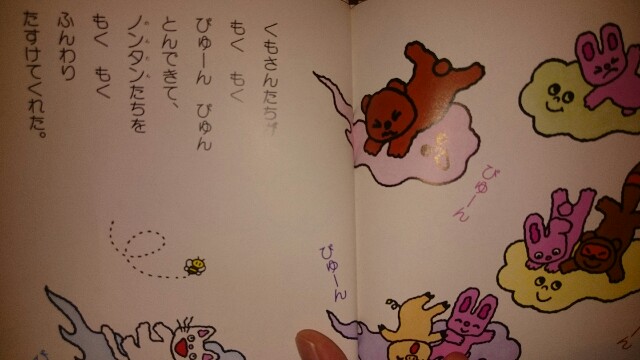 くもさんたちが
もく　もく
びゅーん　びゅん
とんできて、
ノンタンたちを
もく　もく
ふんわり
たすけてくれた。
びゅーん
びゅーん
ん